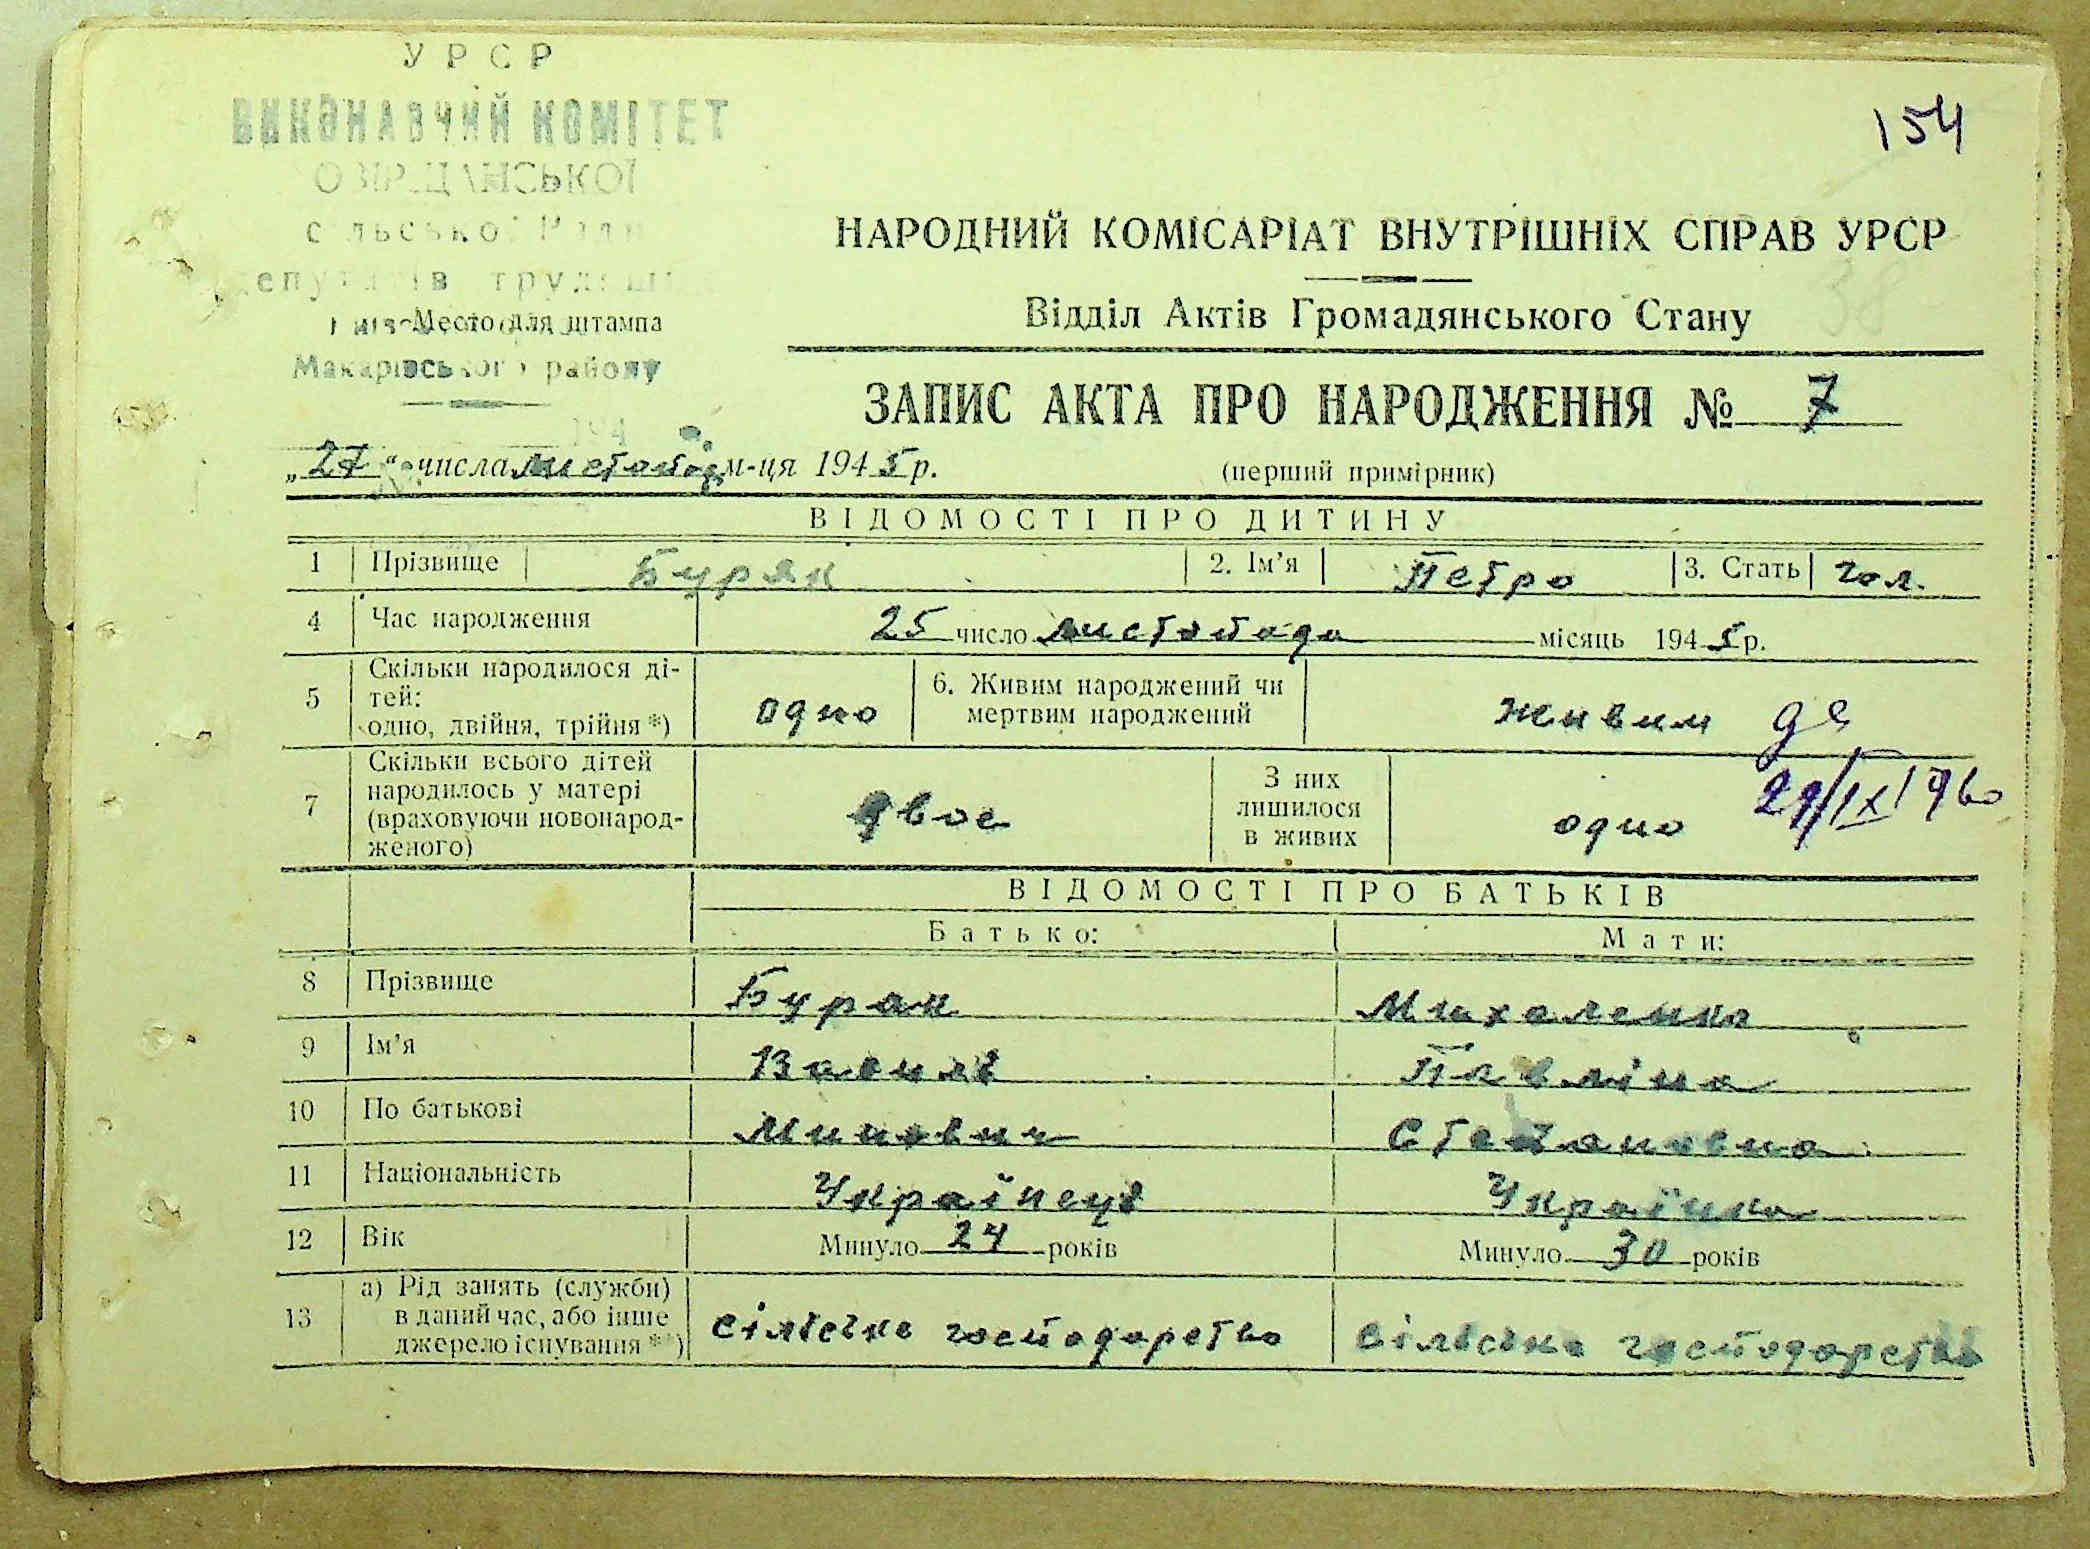 УРСР
ВИКОНАВЧИЙ КОМІТЕТ
154
сільської Ради
НАРОДНИЙ КОМІСАРІАТ ВНУТРІШНІХ СПРАВ УРСР
38
Відділ Актів Громадянського Стану
Место для штампа
Макарівського району
ЗАПИС АКТА ПРО НАРОДЖЕННЯ № 7
194
„27“ числа листопад м-ця 1945 р.
(перший примірник)
ВІДОМОСТІ ПРО ДИТИНУ
1 Прізвище Буряк 2. Ім’я Петро 3. Стать чол.
4 Час народження 25 число листопада місяць 1945 р.
5 Скільки народилося ді-
тей:
одно, двійня, трійня *) одно 6. Живим народжений чи
мертвим народжений живим
7 Скільки всього дітей
народилось у матері
(враховуючи новонарод-
женого) двое З них
лишилося
в живих одно
29/IX 1960
ВІДОМОСТІ ПРО БАТЬКІВ
Батько: Мати:
8 Прізвище Буряк Михаленко
9 Ім’я Василь Павліна
10 По батькові Степановна
11 Національність Українець Українка
12 Вік Минуло 24 років Минуло 30 років
13 а) Рід занять (служби)
в даний час, або інше
джерело існування **) сільське господарство сільське господарство